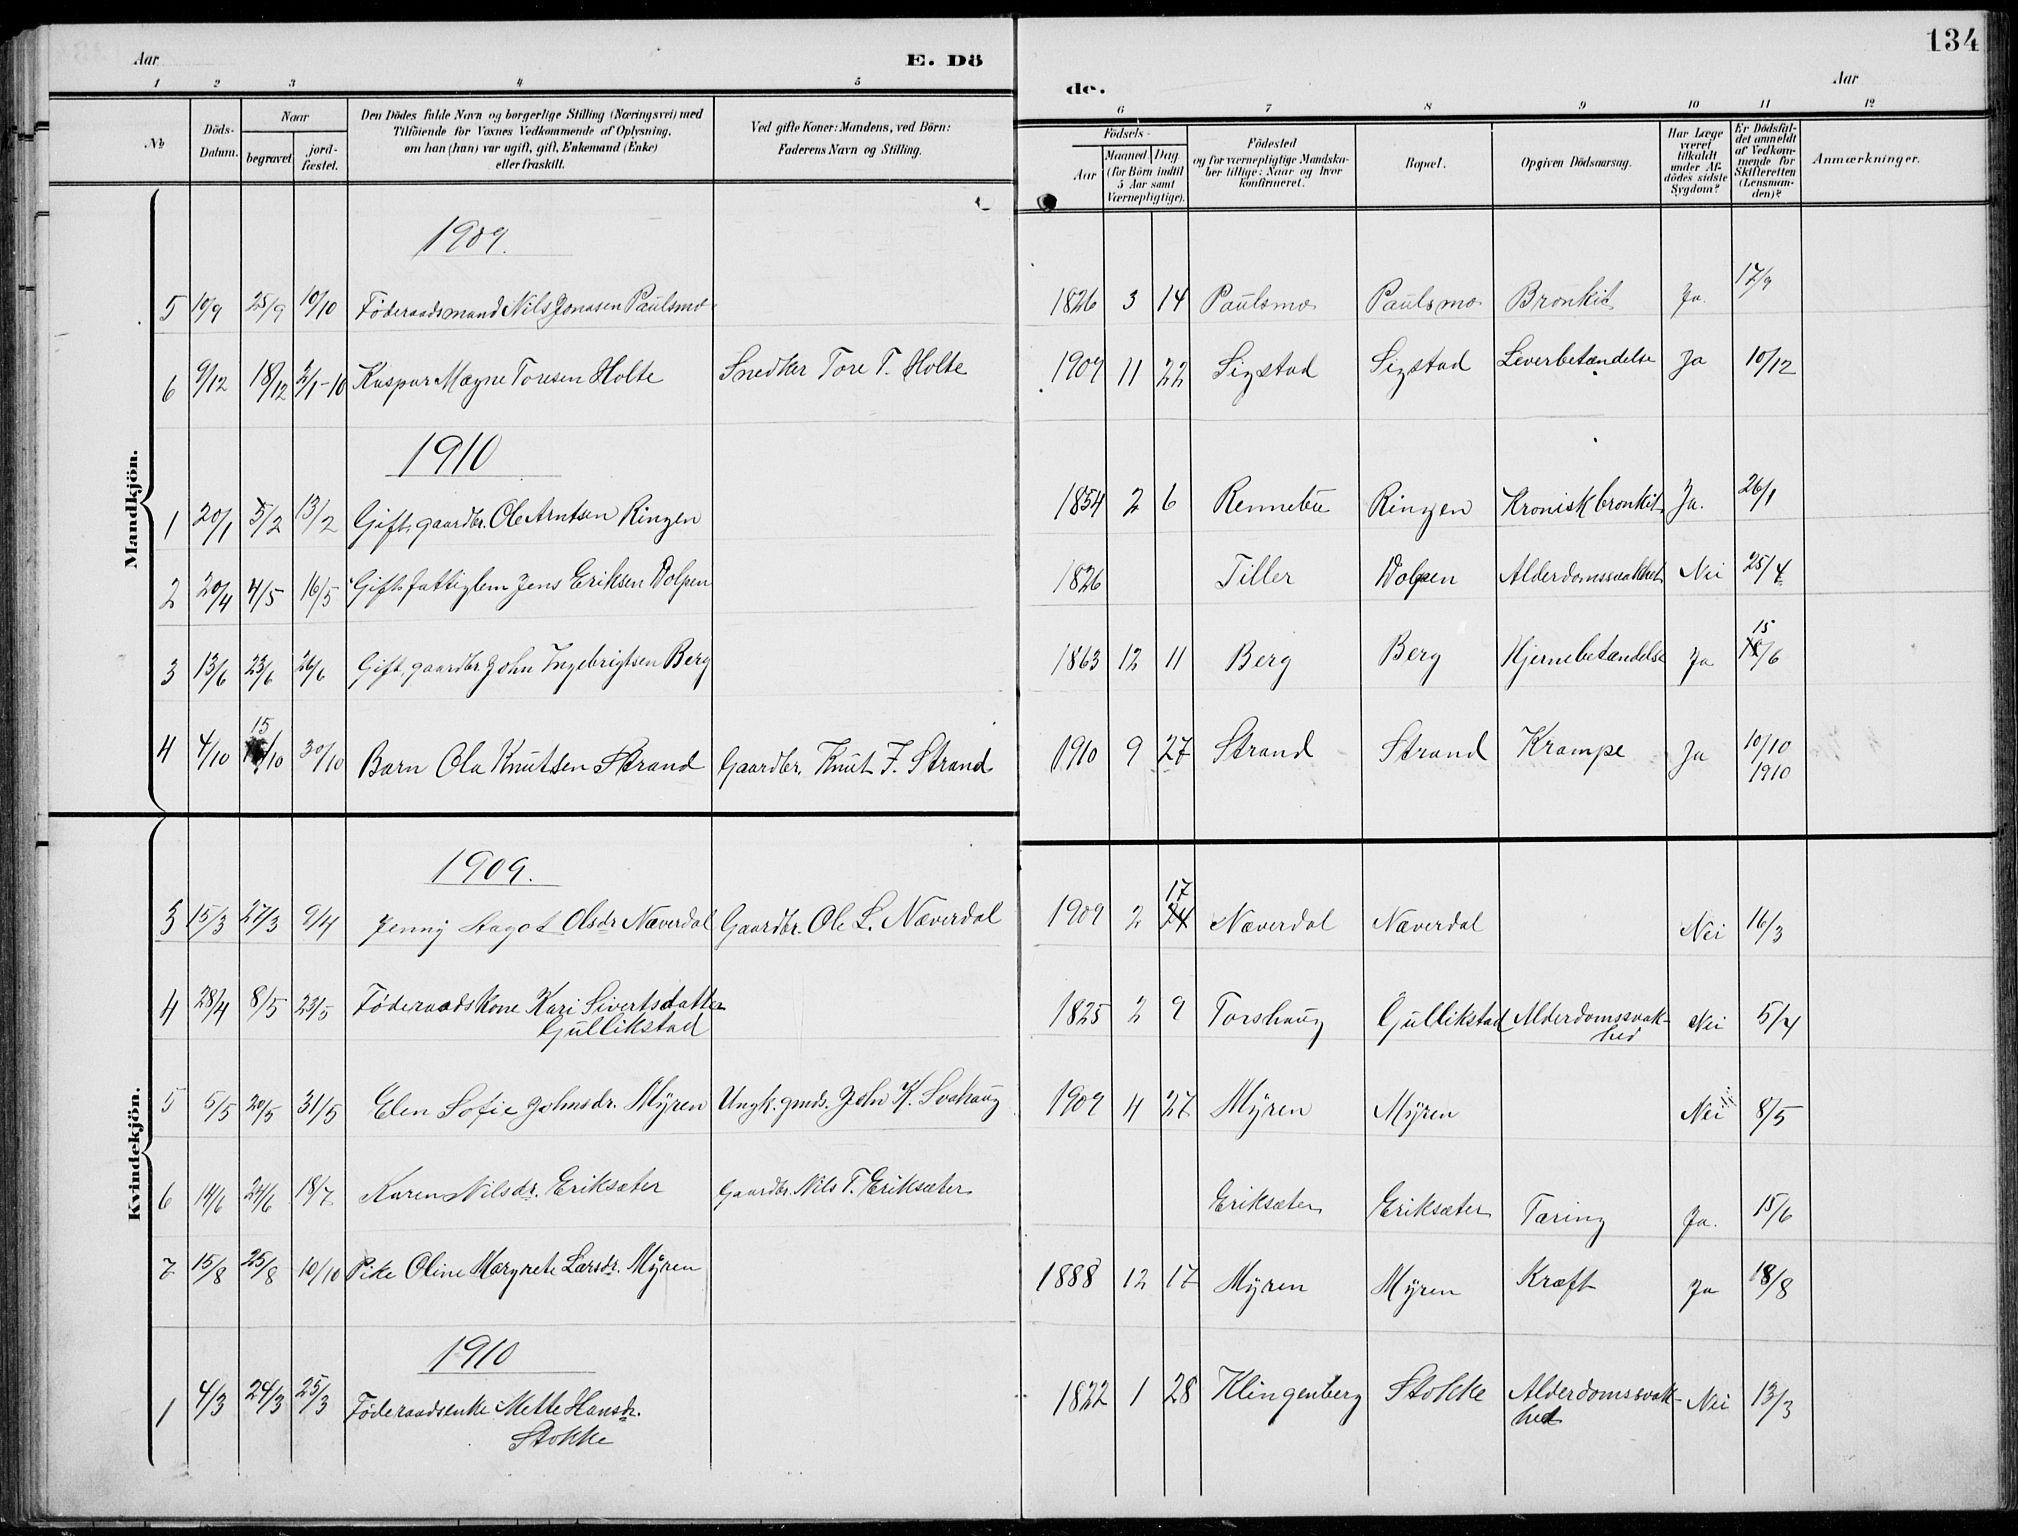 134
Aar
E. Dö
de.
Aar
1 2 3 4 5 6 7 8 9 10 11 12
№
Döds-
Datum.
Naar
begravet
jord-
fæstet.
Den Dödes fulde Navn og borgerlige Stilling (Næringsvei) med
Tilföiende for Voxnes Vedkommende af Oplysning,
om han (hun) var ugift, gift, Enkemand (Enke)
eller fraskilt.
Ved gifte Koner: Mandens, ved Börn:
Faderens Navn og Stilling.
Födsels-
Aar
Maaned Dag
(for Börn indtil
5 Aar samt
Værnepligtige).
Födested
og for værnepligtige Mandska-
ber tillige: Naar og hvor
konfirmeret.
Bopæl.
Opgiven Dödsaarsag.
Har Læge
været
tilkaldt
under Af-
dödes sidste
Sygdom?
Er Dödsfal-
det anmeldt
af Vedkom-
mende for
Skifteretten
(Lensman-
den)?
Anmærkninger.
Mandkjön.
1909.
5 10/9 25/9 10/10 Föderaadsmand Nils Jonasen Paulsmo 1826 3 14 Paulsmo Paulsmo Bronkit Ja. 17/9
6 9/12 18/12 2/1-10 Kaspar Magne Toresen Holte Snedker Tore T. Holte 1909 11 22 Sigstad Sigstad Leverbetændelse Ja 10/12
1910
1 20/1 5/2 13/2 Gift, gaardbr. Ole Arntsen Ringen 1854 2 6 Rennebu Ringen Kronisk bronkit Ja. 26/1
2 20/4 4/5 16/5 Gift fattiglem Jens Eriksen Dolpen 1826 Tiller Dolpen Alderdomssvakhet Nei 25/4
3 13/6 23/6 26/6 Gift, gaardbr. John Ingebrigtsen Berg 1863 12 11 Berg Berg Hjernebetændelse Ja 15/6
4 4/10 15/10 30/10 Barn Ola Knutsen Strand Gaardbr. Knut F. Strand 1910 9 27 Strand Strand Krampe Ja 10/10
1910
Kvindekjön.
1909.
3 15/3 27/3 9/4 Jenny Aagot Olsdr Næverdal Gaardbr. Ole L. Næverdal 1909 2 17 24 Næverdal Næverdal Nei 16/3
4 28/4 8/5 23/5 Föderaadskone Kari Sivertsdatter
Gullikstad 1825 2 9 Torshaug Gullikstad Alderdomssvak-
hed Nei 5/4
5 5/5 20/5 31/5 Elen Sofie Johnsdr. Mÿren Ungk. gmds. John K. Svahaug 1909 4 27 Mÿren Mÿren Nei 8/5
6 14/6 24/6 18/7 Karen Nilsdr. Eriksæter Gaardbr. Nils T. Eriksæter Eriksæter Eriksæter Tæring Ja. 15/6
7 15/8 25/8 10/10 Pike Oline Margrete Larsdr. Mÿren 1888 12 17 Mÿren Mÿren Kræft Ja 18/8
1910
1 4/3 24/3 25/3 Föderaadsenke Mette Hansdr.
Stokke 1822 1 28 Klingenberg Stokke Alderdomssvak-
het Nei 13/3